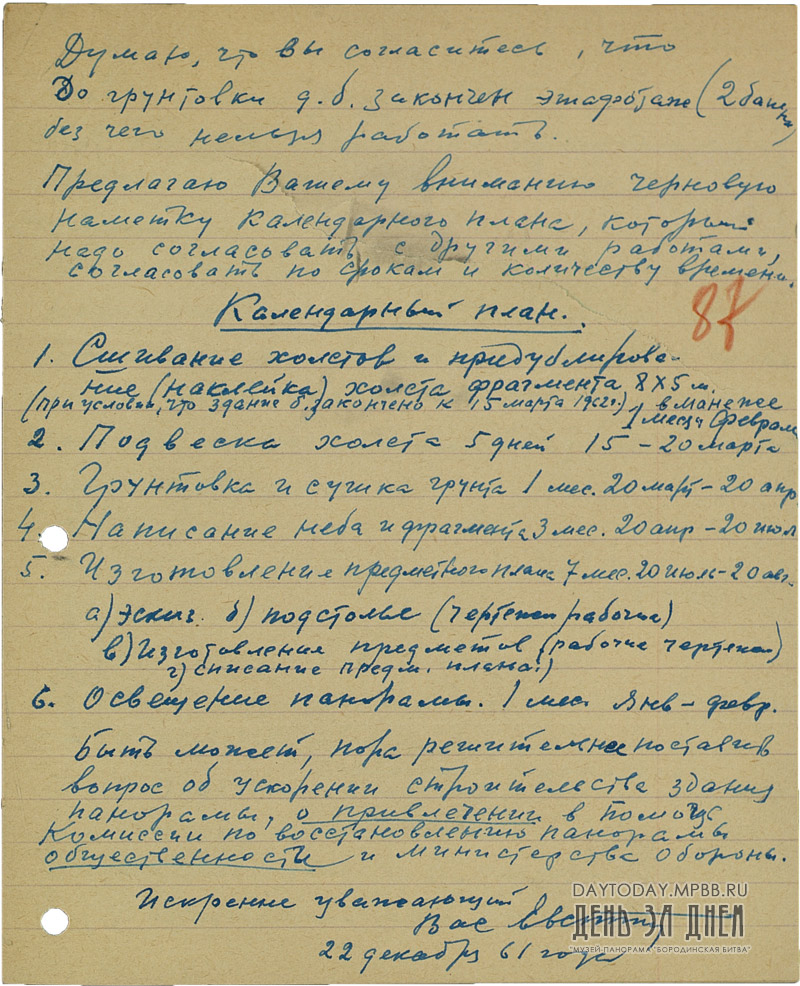 Думаю, что Вы согласитесь, что
До грунтовки д.б. закончен этафотаж (2 башни)
без чего нельзя работать.
Предлагаю Вашему вниманию черновую
наметку календарного плана, который
надо согласовать с другими работами,
согласовать по срокам и количеству времени.
87
Календарный план.
1. Сшивание холстов и придублирова-
ние (наклейка) холста фрагмента 8x5 м.
(При условии, что здание б. закончено к 15 марта 1962 г.) в манеже
1 месяц февраль
2. Подвеска холста 5 дней 15 - 20 марта
3. Грунтовка и сушка грунта 1 мес. 20 март - 20 апр.
4. Написание неба и фрагмента 3 мес. 20 апр - 20 июл
5. Изготовление предметного плана 7 мес. 20 июль - 20
а) Эскиз. б) подстолье (чертежи рабочие)
в) Изготовления предметов (рабочие чертежи)
г) списание предм. плана.)
6. Освещение панорамы. 1 мес. Янв - февр.
Быть может, пора решительнее поставить
вопрос об ускорении строительства здания
панорамы, о привлечении в помощь
Комиссии по восстановлению панорамы
общественности и министерства Обороны.
Искренне уважающий
Вас
22 декабря 61 года
DAYTODAY.MPBB.RU
ДЕНЬ ЗА ДНЕМ
"МУЗЕЙ-ПАНОРАМА "БОРОДИНСКАЯ БИТВА"